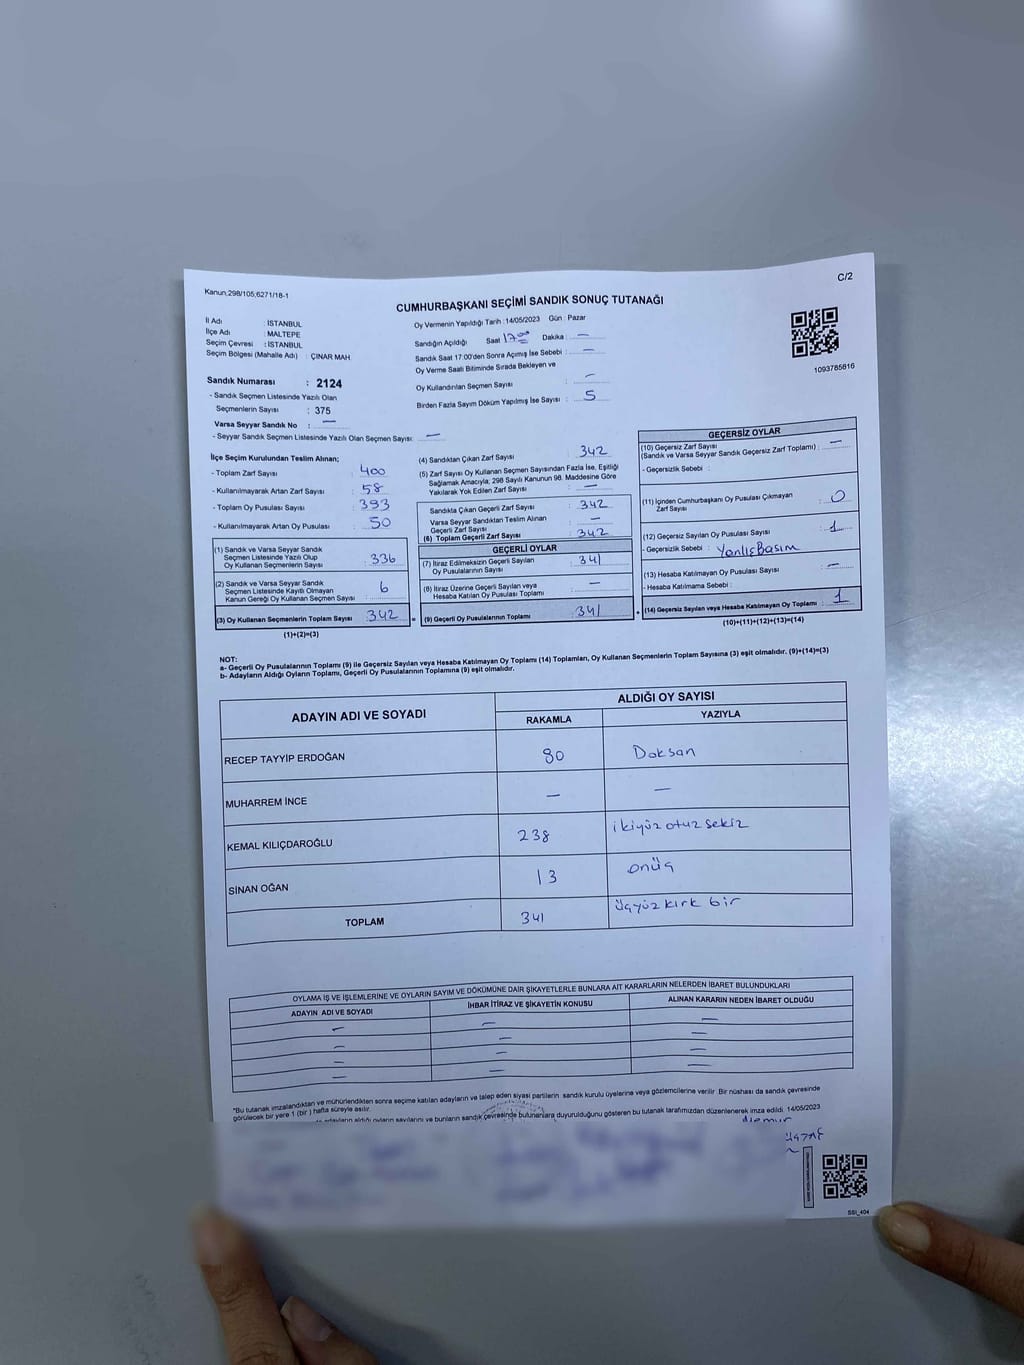 Kanun,298/105,6271/18-1
C/2
CUMHURBAŞKANI SEÇİMİ SANDIK SONUÇ TUTANAĞI
İl Adı : İSTANBUL
İlçe Adı : MALTEPE
Seçim Çevresi : İSTANBUL
Seçim Bölgesi (Mahalle Adı) : ÇINAR MAH
Oy Vermenin Yapıldığı Tarih :14/05/2023 Gün : Pazar
Sandığın Açıldığı Saat 17:00 Dakika : —
Sandık Saat 17:00'den Sonra Açımış İse Sebebi : —
Oy Verme Saati Bitiminde Sırada Bekleyen ve
Oy Kullandırılan Seçmen Sayısı : —
Birden Fazla Sayım Döküm Yapılmış İse Sayısı : 5
1093785816
Sandık Numarası : 2124
- Sandık Seçmen Listesinde Yazılı Olan
Seçmenlerin Sayısı : 375
Varsa Seyyar Sandık No : —
- Seyyar Sandık Seçmen Listesinde Yazılı Olan Seçmen Sayısı: —
İlçe Seçim Kurulundan Teslim Alınan;
- Toplam Zarf Sayısı : 400
- Kullanılmayarak Artan Zarf Sayısı : 58
- Toplam Oy Pusulası Sayısı : 393
- Kullanılmayarak Artan Oy Pusulası : 50
(1) Sandık ve Varsa Seyyar Sandık
Seçmen Listesinde Yazılı Olup
Oy Kullanan Seçmenlerin Sayısı : 336
(2) Sandık ve Varsa Seyyar Sandık
Seçmen Listesinde Kayıtlı Olmayan
Kanun Gereği Oy Kullanan Seçmen Sayısı : 6
(3) Oy Kullanan Seçmenlerin Toplam Sayısı : 342
(1)+(2)=(3)
(4) Sandıktan Çıkan Zarf Sayısı : 342
(5) Zarf Sayısı Oy Kullanan Seçmen Sayısından Fazla İse, Eşitliği
Sağlamak Amacıyla; 298 Sayılı Kanunun 98. Maddesine Göre
Yakılarak Yok Edilen Zarf Sayısı : —
Sandıkta Çıkan Geçerli Zarf Sayısı : 342
Varsa Seyyar Sandıktan Teslim Alınan
Geçerli Zarf Sayısı : —
(6) Toplam Geçerli Zarf Sayısı : 342
GEÇERLİ OYLAR
(7) İtiraz Edilmeksizin Geçerli Sayılan
Oy Pusulalarının Sayısı : 341
(8) İtiraz Üzerine Geçerli Sayılan veya
Hesaba Katılan Oy Pusulası Toplamı : —
(9) Geçerli Oy Pusulalarının Toplamı : 341
GEÇERSİZ OYLAR
(10) Geçersiz Zarf Sayısı
(Sandık ve Varsa Seyyar Sandık Geçersiz Zarf Toplamı) : —
- Geçersizlik Sebebi :
(11) İçinden Cumhurbaşkanı Oy Pusulası Çıkmayan
Zarf Sayısı : 0
(12) Geçersiz Sayılan Oy Pusulası Sayısı : 1
- Geçersizlik Sebebi : Yanlış Basım
(13) Hesaba Katılmayan Oy Pusulası Sayısı : —
- Hesaba Katılmama Sebebi :
(14) Geçersiz Sayılan veya Hesaba Katılmayan Oy Toplamı : 1
(10)+(11)+(12)+(13)=(14)
NOT:
a- Geçerli Oy Pusulalarının Toplamı (9) ile Geçersiz Sayılan veya Hesaba Katılmayan Oy Toplamı (14) Toplamları, Oy Kullanan Seçmenlerin Toplam Sayısına (3) eşit olmalıdır. (9)+(14)=(3)
b- Adayların Aldığı Oyların Toplamı, Geçerli Oy Pusulalarının Toplamına (9) eşit olmalıdır.
ADAYIN ADI VE SOYADI
ALDIĞI OY SAYISI
RAKAMLA YAZIYLA
RECEP TAYYİP ERDOĞAN 90 Doksan
MUHARREM İNCE — —
KEMAL KILIÇDAROĞLU 238 ikiyüz otuz sekiz
SİNAN OĞAN 13 onüç
TOPLAM 341 üçyüz kırk bir
OYLAMA İŞ VE İŞLEMLERİNE VE OYLARIN SAYIM VE DÖKÜMÜNE DAİR ŞİKAYETLERLE BUNLARA AİT KARARLARIN NELERDEN İBARET BULUNDUKLARI
ADAYIN ADI VE SOYADI İHBAR İTİRAZ VE ŞİKAYETİN KONUSU ALINAN KARARIN NEDEN İBARET OLDUĞU
— — —
— — —
— — —
— — —
*Bu tutanak imzalandıktan ve mühürlendikten sonra seçime katılan adayların ve talep eden siyasi partilerin sandık kurulu üyelerine veya gözlemcilerine verilir. Bir nüshası da sandık çevresinde
görülecek bir yere 1 (bir ) hafta süreyle asılır.
adayların aldığı oyların sayılarını ve bunların sandık çevresinde bulunanlara duyurulduğunu gösteren bu tutanak tarafımızdan düzenlenerek imza edildi. 14/05/2023
Memur
SSI_404